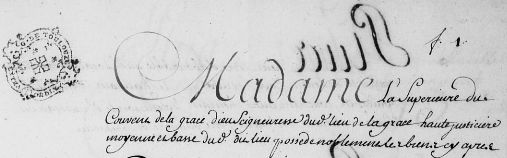 Pour f 1
Madame La Superieure du
Couvent de la grace dieu Seigneuresse dud. lieu de la grace haute justiciere
moyenne et basse dud. lieu possede noblement les biens cy apres